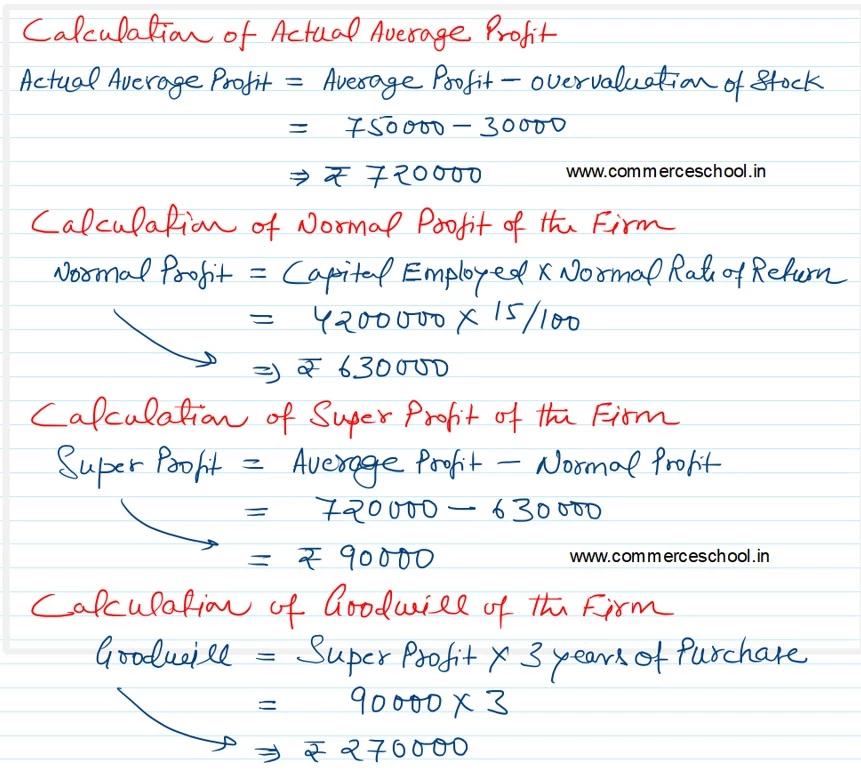 Calculation of Actual Average Profit
Actual Average Profit = Average Profit - overvaluation of Stock
= 750000 - 30000
⇒ ₹ 720000
www.commerceschool.in
Calculation of Normal Profit of the Firm
Normal Profit = Capital Employed × Normal Rate of Return
= 4200000 × 15/100
⇒ ₹ 630000
Calculation of Super Profit of the Firm
Super Profit = Average Profit - Normal Profit
= 720000 - 630000
= ₹ 90000
www.commerceschool.in
Calculation of Goodwill of the Firm
Goodwill = Super Profit × 3 years of Purchase
= 90000 × 3
⇒ ₹ 270000